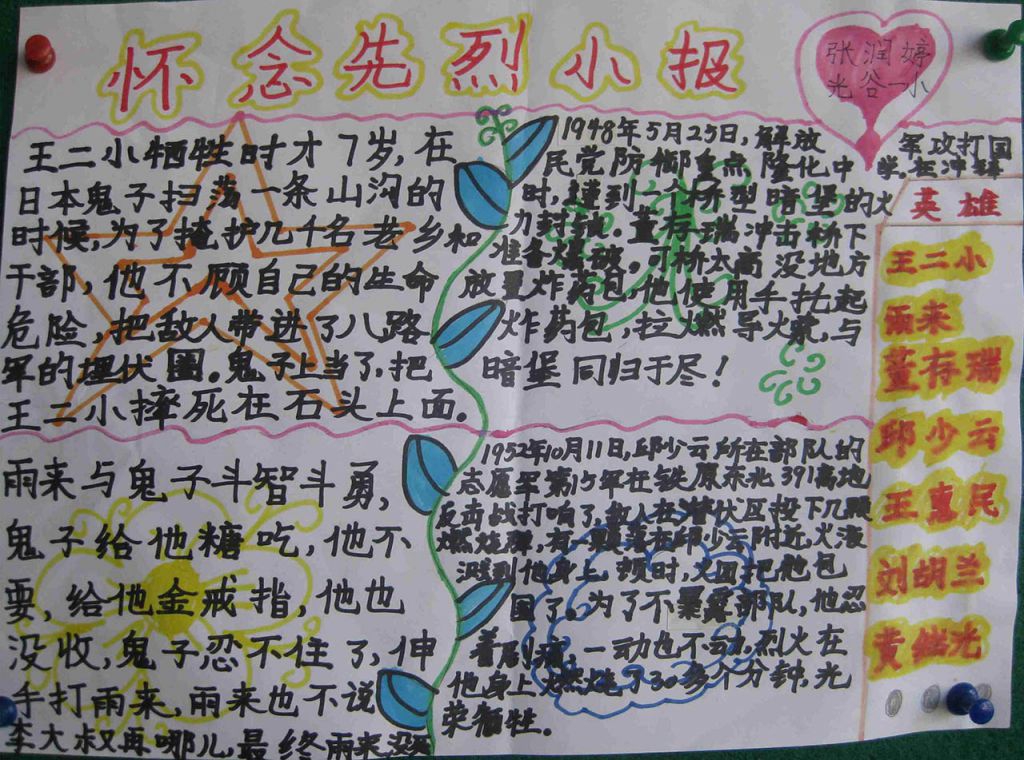 怀念先烈小报
张润婷
光谷一小
王二小牺牲时才7岁,在
日本鬼子扫荡一条山沟的
时候,为了掩护几千名老乡和
干部,他不顾自己的生命
危险,把敌人带进了八路
军的埋伏圈。鬼子上当了,把
王二小摔死在石头上面。
1948年5月25日,解放军攻打国
民党防御重点隆化中学,在冲锋
时,遭到一个桥型暗堡的火
力封锁。董存瑞冲击桥下
准备爆破。可桥太高没地方
放置炸药包,他使用手托起
炸药包,拉燃导火索,与
暗堡同归于尽!
雨来与鬼子斗智斗勇,
鬼子给他糖吃,他不
要,给他金戒指,他也
没收,鬼子忍不住了,伸
手打雨来,雨来也不说
李大叔再哪儿,最终雨来没
1952年10月11日,邱少云所在部队的
志愿军第15军在铁原东北391高地
反击战打响了,敌人在潜伏区投下几颗
燃烧弹,有一颗落在邱少云附近,火液
溅到他身上,顿时,火团把他包
围了。为了不暴露部队,他忍
着剧痛,一动也不动,烈火在
他身上燃烧了30多个分钟,光
荣牺牲。
英雄
王二小
雨来
董存瑞
邱少云
王惠民
刘胡兰
黄继光